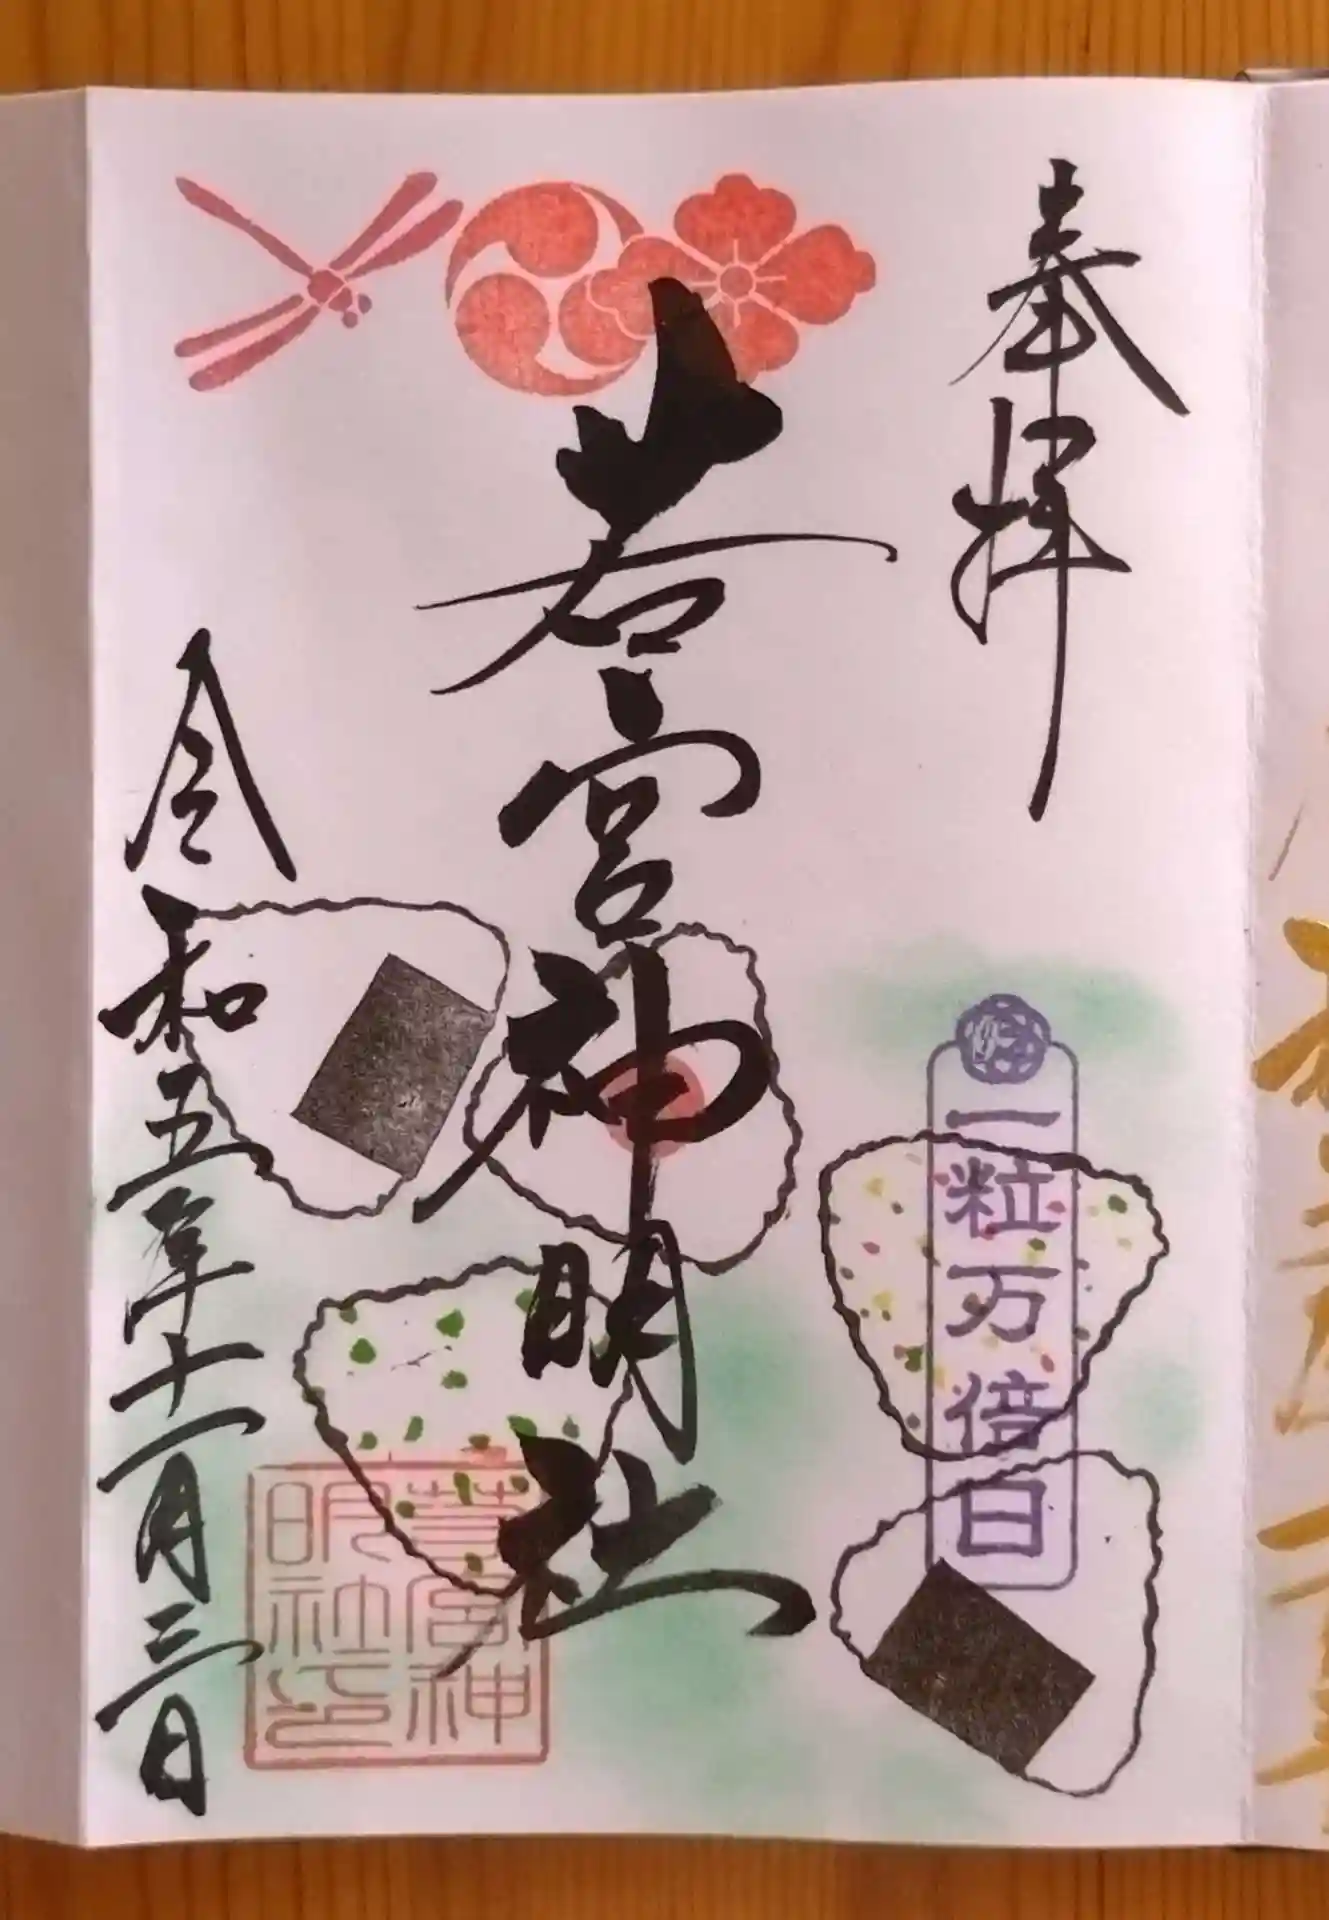 奉拝
一粒万倍日
若宮神明社
若宮神
明社印
令和五年十一月三日